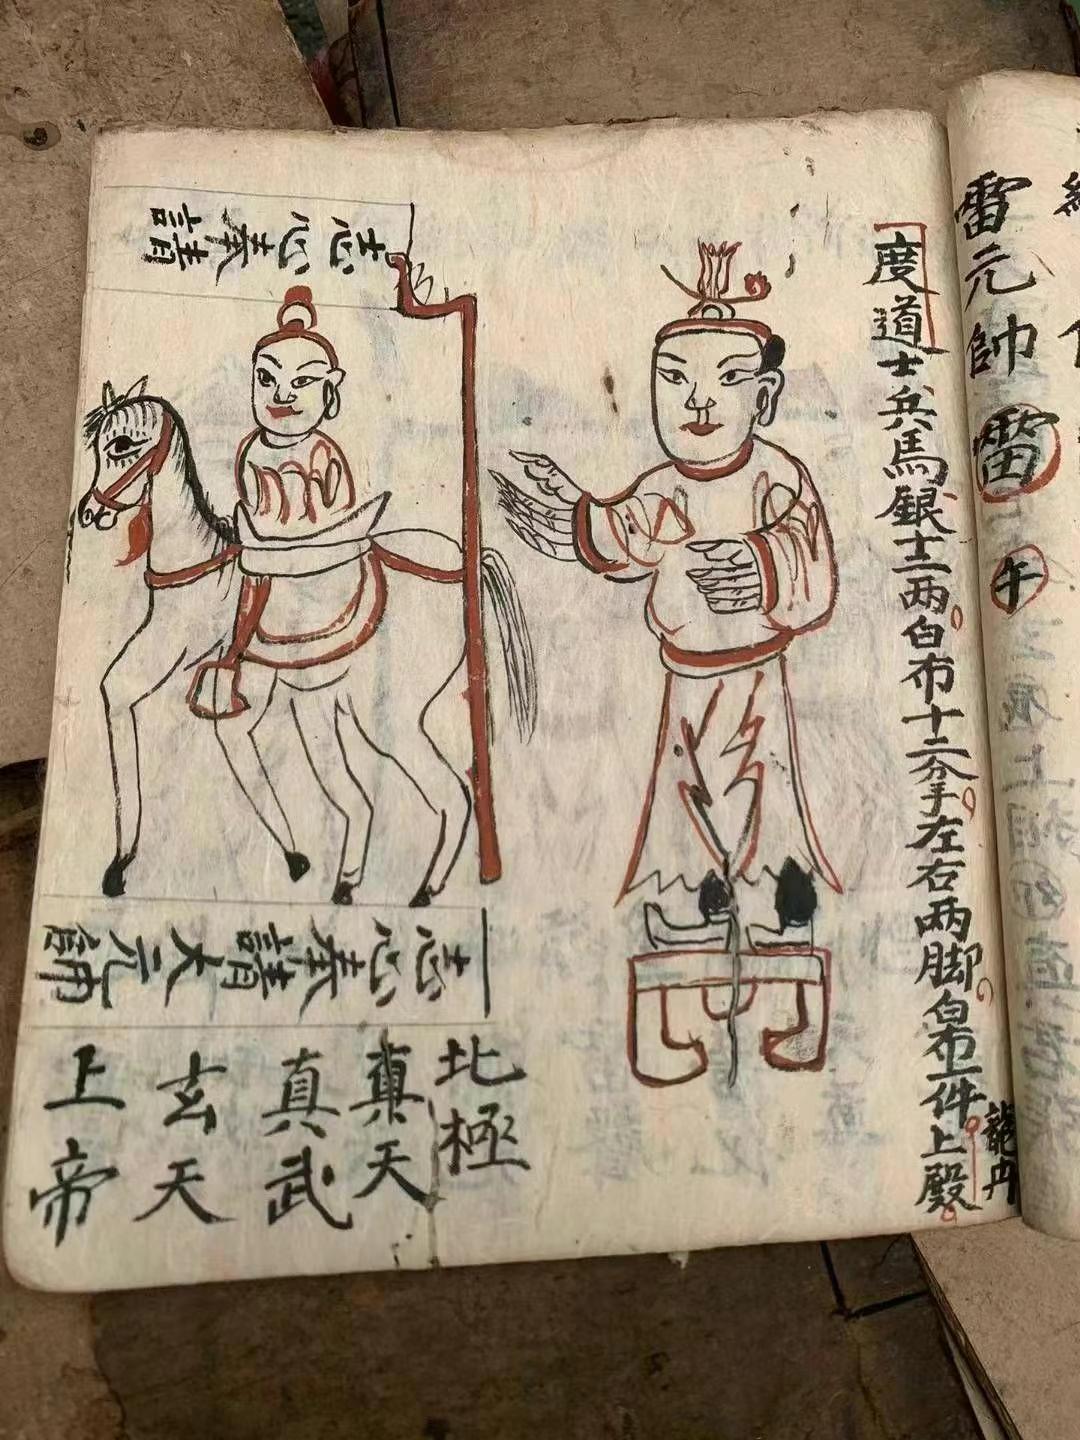 雷元帥 雷 午
度道士兵馬銀士二両白布十二分手左右両脚白布一件上殿
志心奉請
志心奉請大元帥
北極
真天
真武
玄天
上帝